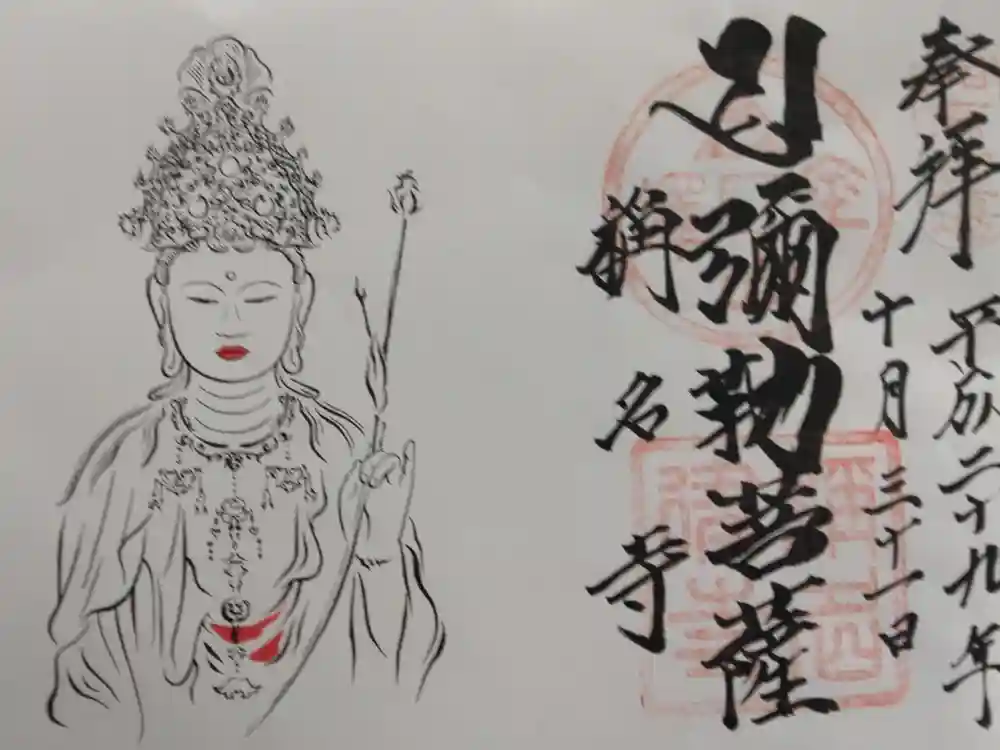 奉拝
平成二十九年
十月三十一日
彌勒菩薩
稱名寺